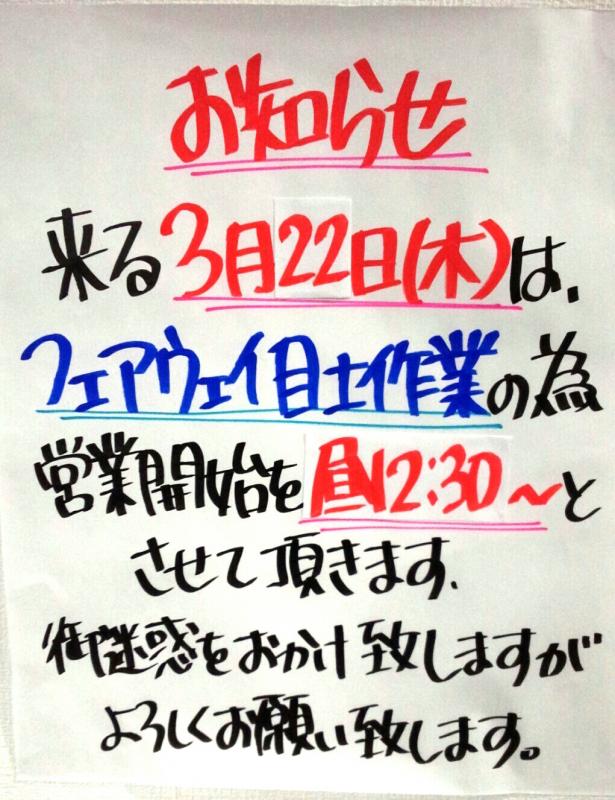 お知らせ
来る3月22日(木)は、
フェアウェイ目土作業の為
営業開始を昼12:30～と
させて頂きます、
御迷惑をおかけ致しますが
よろしくお願い致します。